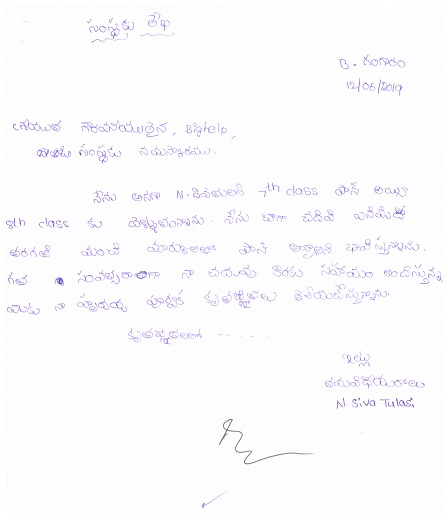 సంస్థకు లేఖ
B. గంగారం
12/06/2019
శ్రీయుత గౌరవనీయులైన, Bighelp,
సంస్థకు నమస్కారము.
నేను అనగా N. శివతులసి 7th class పాస్ అయి
8th class కు వెళ్ళుతున్నాను. నేను బాగా చదివి ఎనిమిదో
తరగతి మంచి మార్కులతో పాస్ అవ్వాలని భావిస్తున్నాను.
గత సంవత్సరాలుగా నా చదువు కొరకు సహాయం అందిస్తున్న
మీకు నా హృదయ పూర్వక కృతజ్ఞతలు తెలియజేస్తున్నాను.
కృతజ్ఞతలతో - - - - -
ఇట్లు
తమ విధేయురాలు
N. Siva Tulasi